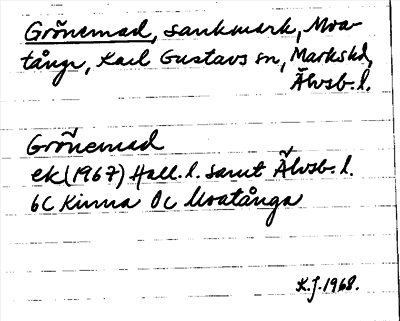 Grönemad, sankmark, Moa-
tånge, Karl Gustavs sn, Marks hd,
Älvsb. l.
Grönemad
ek (1967) Hall. l. samt Älvsb. l.
6C Kinna 0c Moatånga
K.J. 1968.